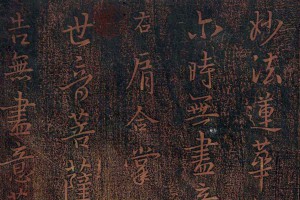 妙法蓮華
尒時無盡意
右肩合掌
世音菩薩
告無盡意菩